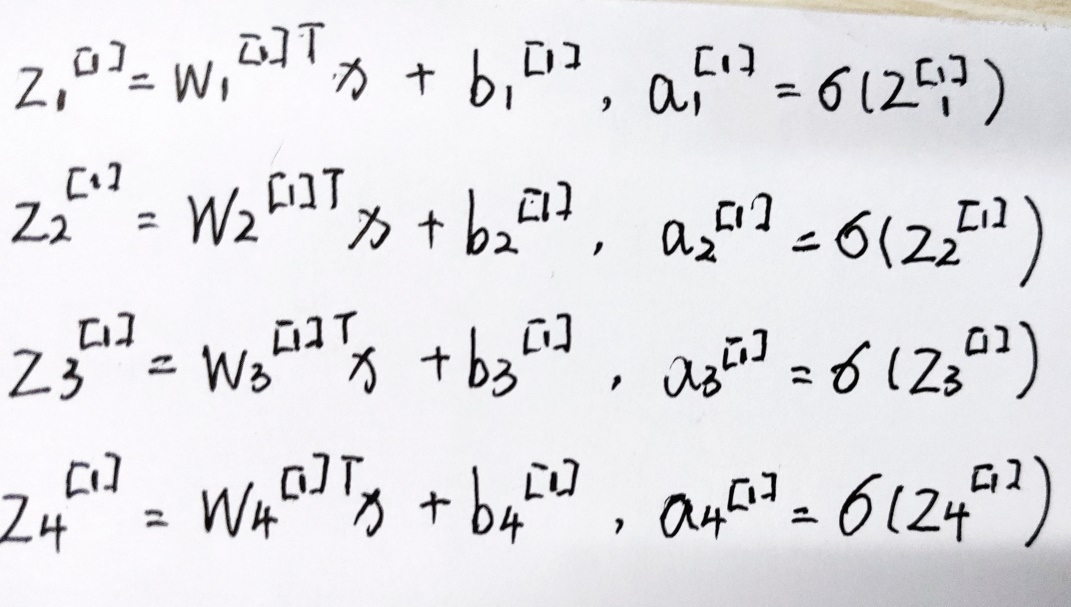 z₁^[1] = W₁^[1]T x + b₁^[1], a₁^[1] = σ(z₁^[1])
z₂^[1] = W₂^[1]T x + b₂^[1], a₂^[1] = σ(z₂^[1])
z₃^[1] = W₃^[1]T x + b₃^[1], a₃^[1] = σ(z₃^[1])
z₄^[1] = W₄^[1]T x + b₄^[1], a₄^[1] = σ(z₄^[1])